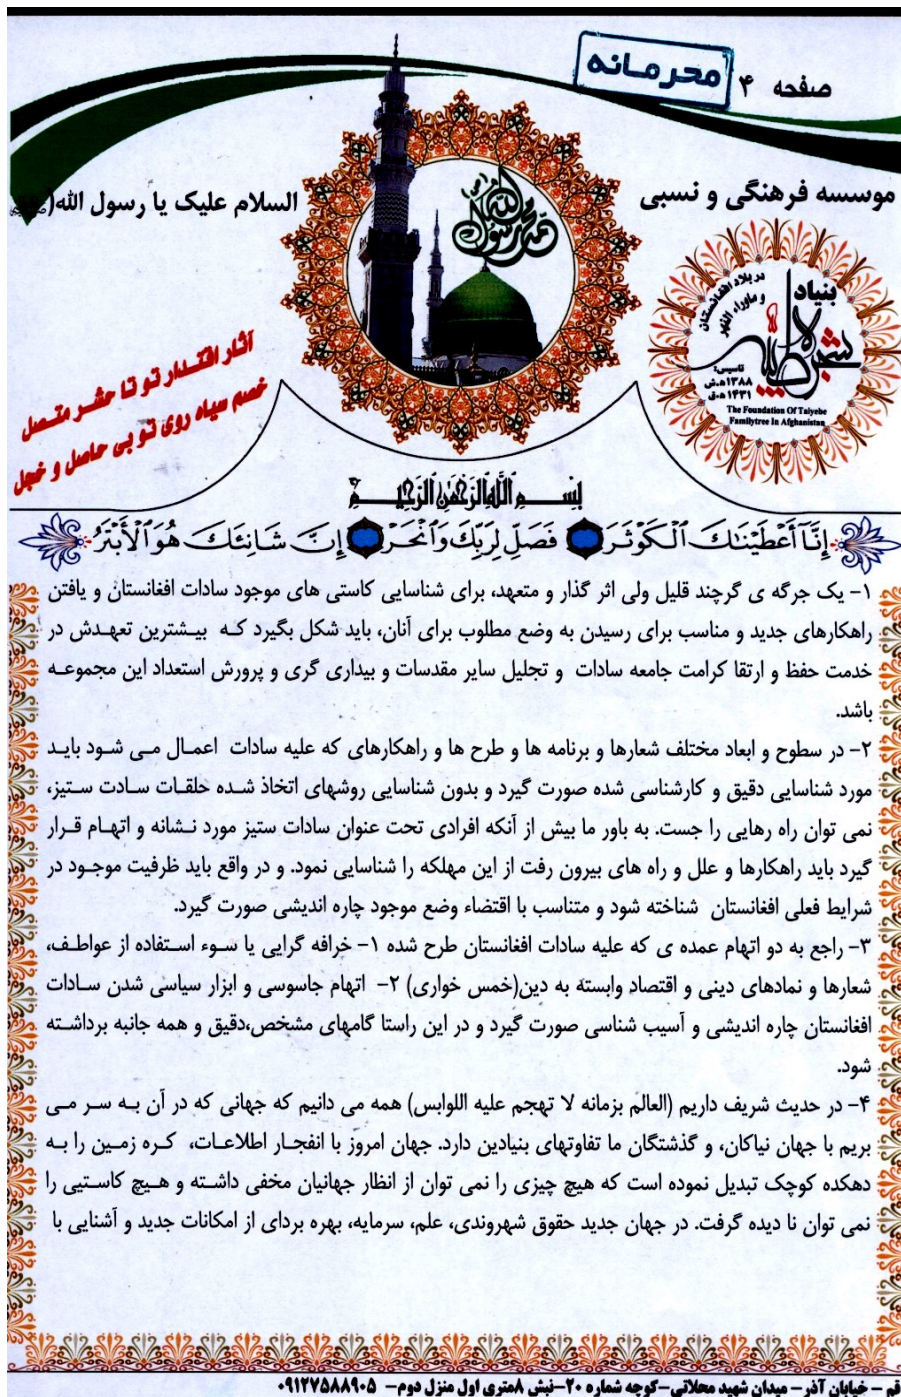 صفحه ۴
محرمانه
موسسه فرهنگی و نسبی
السلام علیک یا رسول الله(
محمد رسول الله
بنیاد
شجره طیبه
در بلاد افغانستان
و ماوراء النهر
تاسیس:
۱۳۸۸ه.ش
۱۴۳۱ه.ق
The Foundation Of Taiyebe
Familytree In Afghanistan
آثار اقتـدار تو تا حشـر متـصل
خصم سیاه روی تو بی حاصل و خجل
بِسْـــمِ ٱللَّهِ ٱلرَّحْمَٰنِ ٱلرَّحِيـــمِ
إِنَّآ أَعْطَيْنَٰكَ ٱلْكَوْثَرَ فَصَلِّ لِرَبِّكَ وَٱنْحَرْ إِنَّ شَانِئَكَ هُوَ ٱلْأَبْتَرُ
۱- یک جرگه ی گرچند قلیل ولی اثر گذار و متعهد، برای شناسایی کاستی های موجود سادات افغانستان و یافتن
راهکارهای جدید و مناسب برای رسیدن به وضع مطلوب برای آنان، باید شکل بگیرد کـه بیـشترین تعهـدش در
خدمت حفظ و ارتقا کرامت جامعه سادات و تجلیل سایر مقدسات و بیداری گری و پرورش استعداد این مجموعـه
باشد.
۲- در سطوح و ابعاد مختلف شعارها و برنامه ها و طرح ها و راهکارهای که علیه سادات اعمـال مـی شـود بایـد
مورد شناسایی دقیق و کارشناسی شده صورت گیرد و بدون شناسایی روشهای اتخاذ شـده حلقـات سـادت سـتیز،
نمی توان راه رهایی را جست. به باور ما بیش از آنکه افرادی تحت عنوان سادات ستیز مورد نـشانه و اتهـام قـرار
گیرد باید راهکارها و علل و راه های بیرون رفت از این مهلکه را شناسایی نمود. و در واقع باید ظرفیت موجـود در
شرایط فعلی افغانستان شناخته شود و متناسب با اقتضاء وضع موجود چاره اندیشی صورت گیرد.
۳- راجع به دو اتهام عمده ی که علیه سادات افغانستان طرح شده ۱- خرافه گرایی یا سـوء اسـتفاده از عواطـف،
شعارها و نمادهای دینی و اقتصاد وابسته به دین(خمس خواری) ۲- اتهام جاسوسی و ابزار سیاسی شدن سـادات
افغانستان چاره اندیشی و آسیب شناسی صورت گیرد و در این راستا گامهای مشخص،دقیق و همه جانبه برداشـته
شود.
۴- در حدیث شریف داریم (العالم بزمانه لا تهجم علیه اللوابس) همه می دانیم که جهانی که در آن بـه سـر مـی
بریم با جهان نیاکان، و گذشتگان ما تفاوتهای بنیادین دارد. جهان امروز با انفجـار اطلاعـات، کـره زمـین را بـه
دهکده کوچک تبدیل نموده است که هیچ چیزی را نمی توان از انظار جهانیان مخفی داشـته و هـیچ کاسـتیی را
نمی توان نا دیده گرفت. در جهان جدید حقوق شهروندی، علم، سرمایه، بهره بردای از امکانات جدید و آشنایی با
قم - خیابان آذر- میدان شهید محلاتی-کوچه شماره ۲۰-نبش ۸متری اول منزل دوم- ۰۹۱۲۷۵۸۸۹۰۵